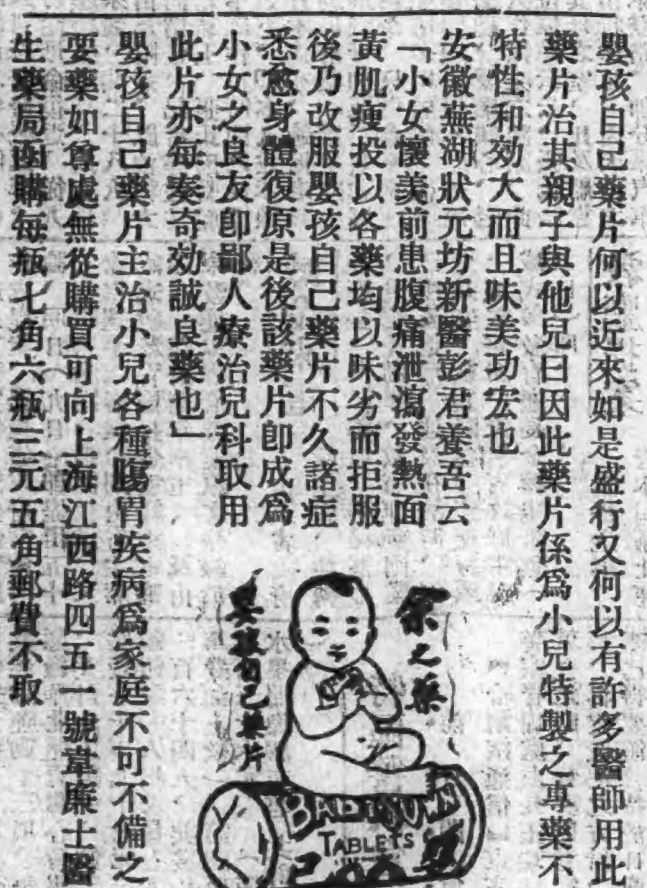 嬰孩自己藥片何以近來如是盛行又何以有許多醫師用此
藥片治其親子與他兒曰因此藥片係爲小兒特製之專藥不
特性和効大而且味美功宏也
安徽蕪湖狀元坊新醫彭君養吾云
「小女懷美前患腹痛泄瀉發熱面
黃肌瘦投以各藥均以味劣而拒服
後乃改服嬰孩自己藥片不久諸症
悉愈身體復原是後該藥片卽成爲
小女之良友卽鄙人療治兒科取用
此片亦每奏奇効誠良藥也」
嬰孩自己藥片主治小兒各種腸胃疾病爲家庭不可不備之
要藥如尊處無從購買可向上海江西路四五一號韋廉士醫
生藥局函購每瓶七角六瓶三元五角郵費不取
余之藥
嬰孩自己藥片
BABY'S OWN
TABLETS